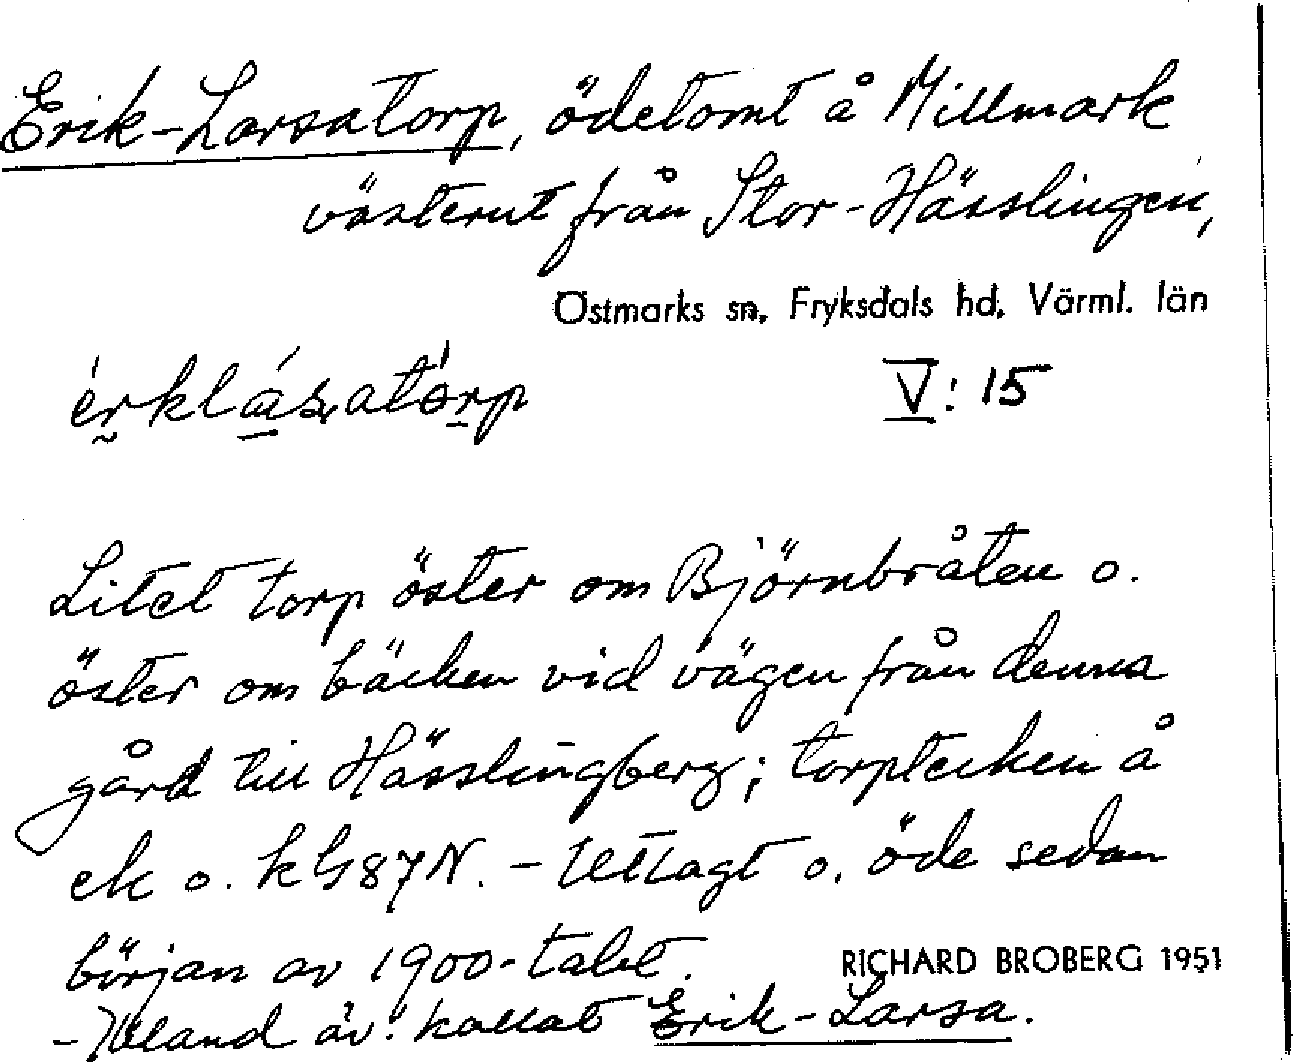 Erik-Larsatorp, ödetomt å Millmark
västerut från Stor-Hässlingen,
Östmarks sn, Fryksdals hd, Värml. län
V:15
Litet torp öster om Björnbråten o.
öster om bäcken vid vägen från denna
gård till Hässlingberg; torptecken å
ek o. k G87N. - Utlagt o. öde sedan
början av 1900-talet.
RICHARD BROBERG 1951
- Ibland äv. kallat Erik-Larsa.